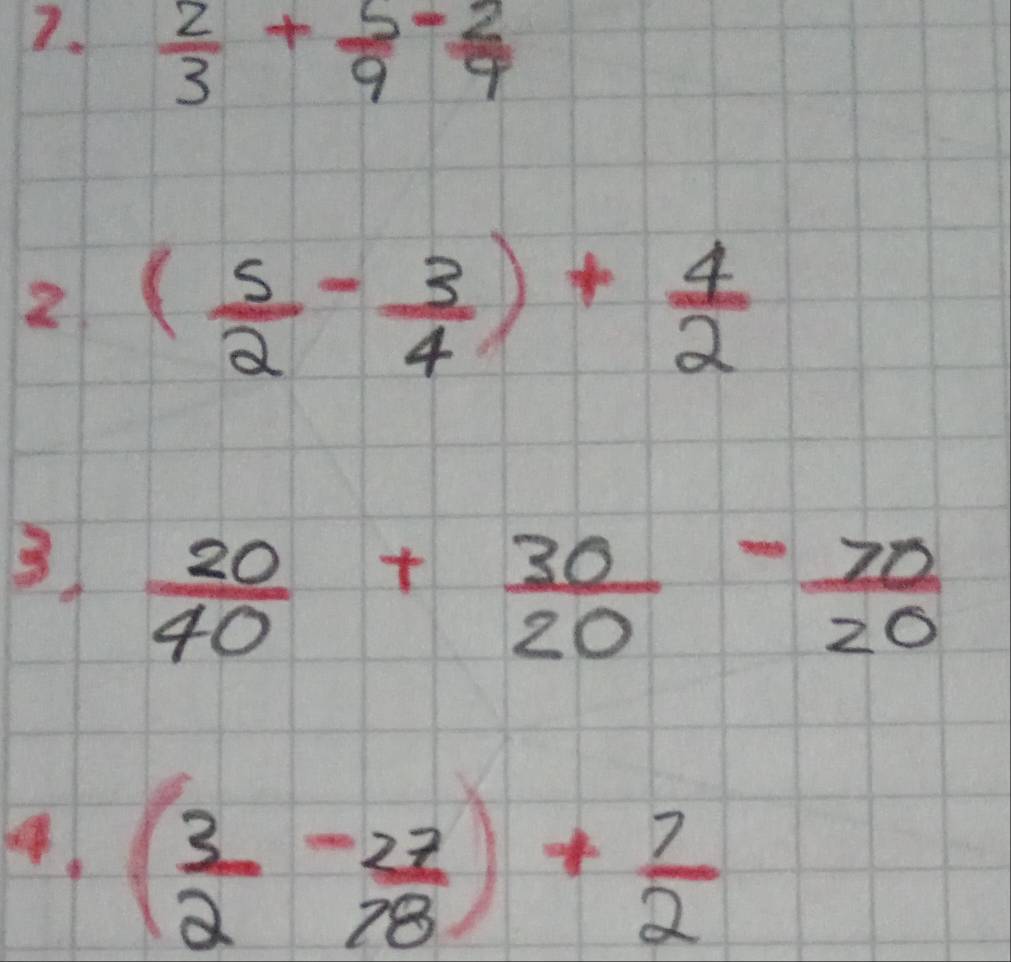 1. 2/3 + 5/9 - 2/4
2. (5/2 - 3/4) + 4/2
3. 20/40 + 30/20 - 10/20
4. (3/2 - 27/18) + 1/2